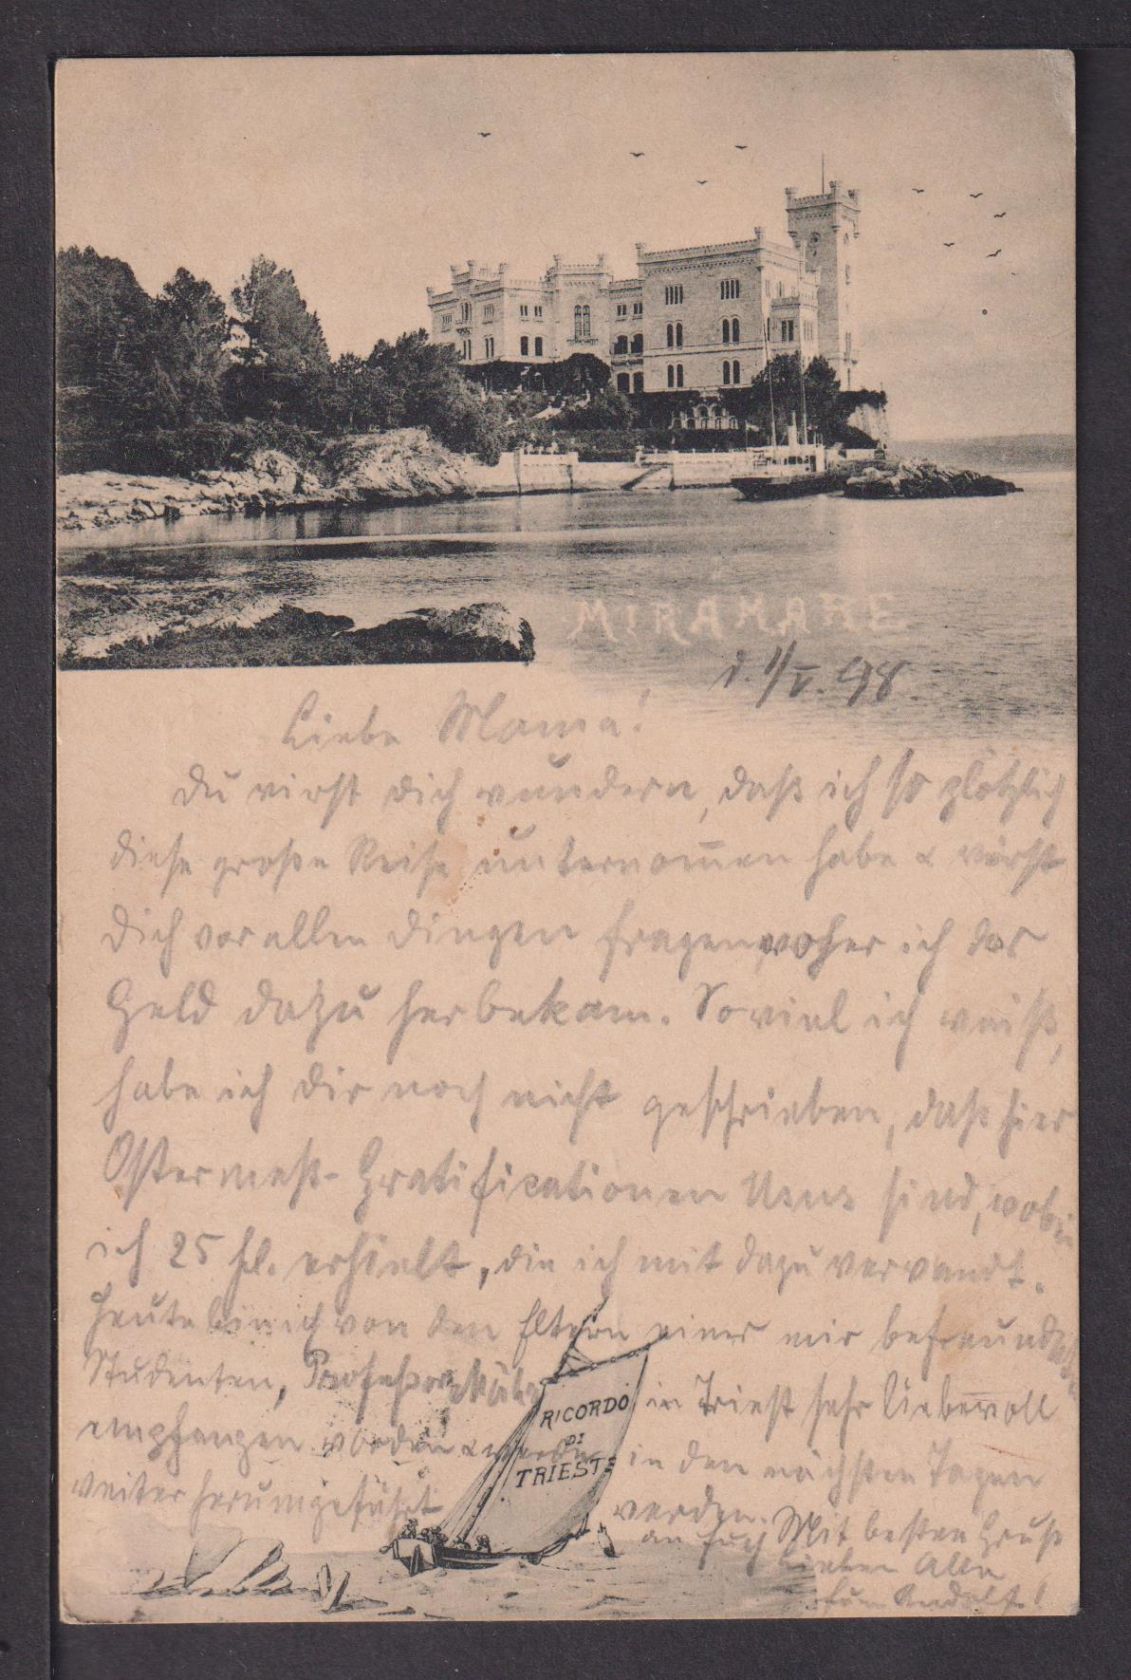 MIRAMARE
d. 1/V. 98
Liebe Mama!
Du wirst dich wundern, daß ich so plötzlich
diese große Reise unternom̄en habe & wirst
Dich vor allen Dingen fragen, woher ich das
Geld dazu herbekam. Soviel ich weiß,
habe ich dir noch nicht geschrieben, daß hier
Gratificationen sind, wobei
ich 25 fl. erhielt, die ich mit dazu verwandt.
Heute bin ich von den Eltern eines mir befreundeten
Studenten, Professor in Triest sehr liebevoll
empfangen worden & werde in den nächsten Tagen
weiter herumgeführt werden. Mit besten Gruß
an Euch lieben Alle
Rudolf!
RICORDO
DI
TRIESTE